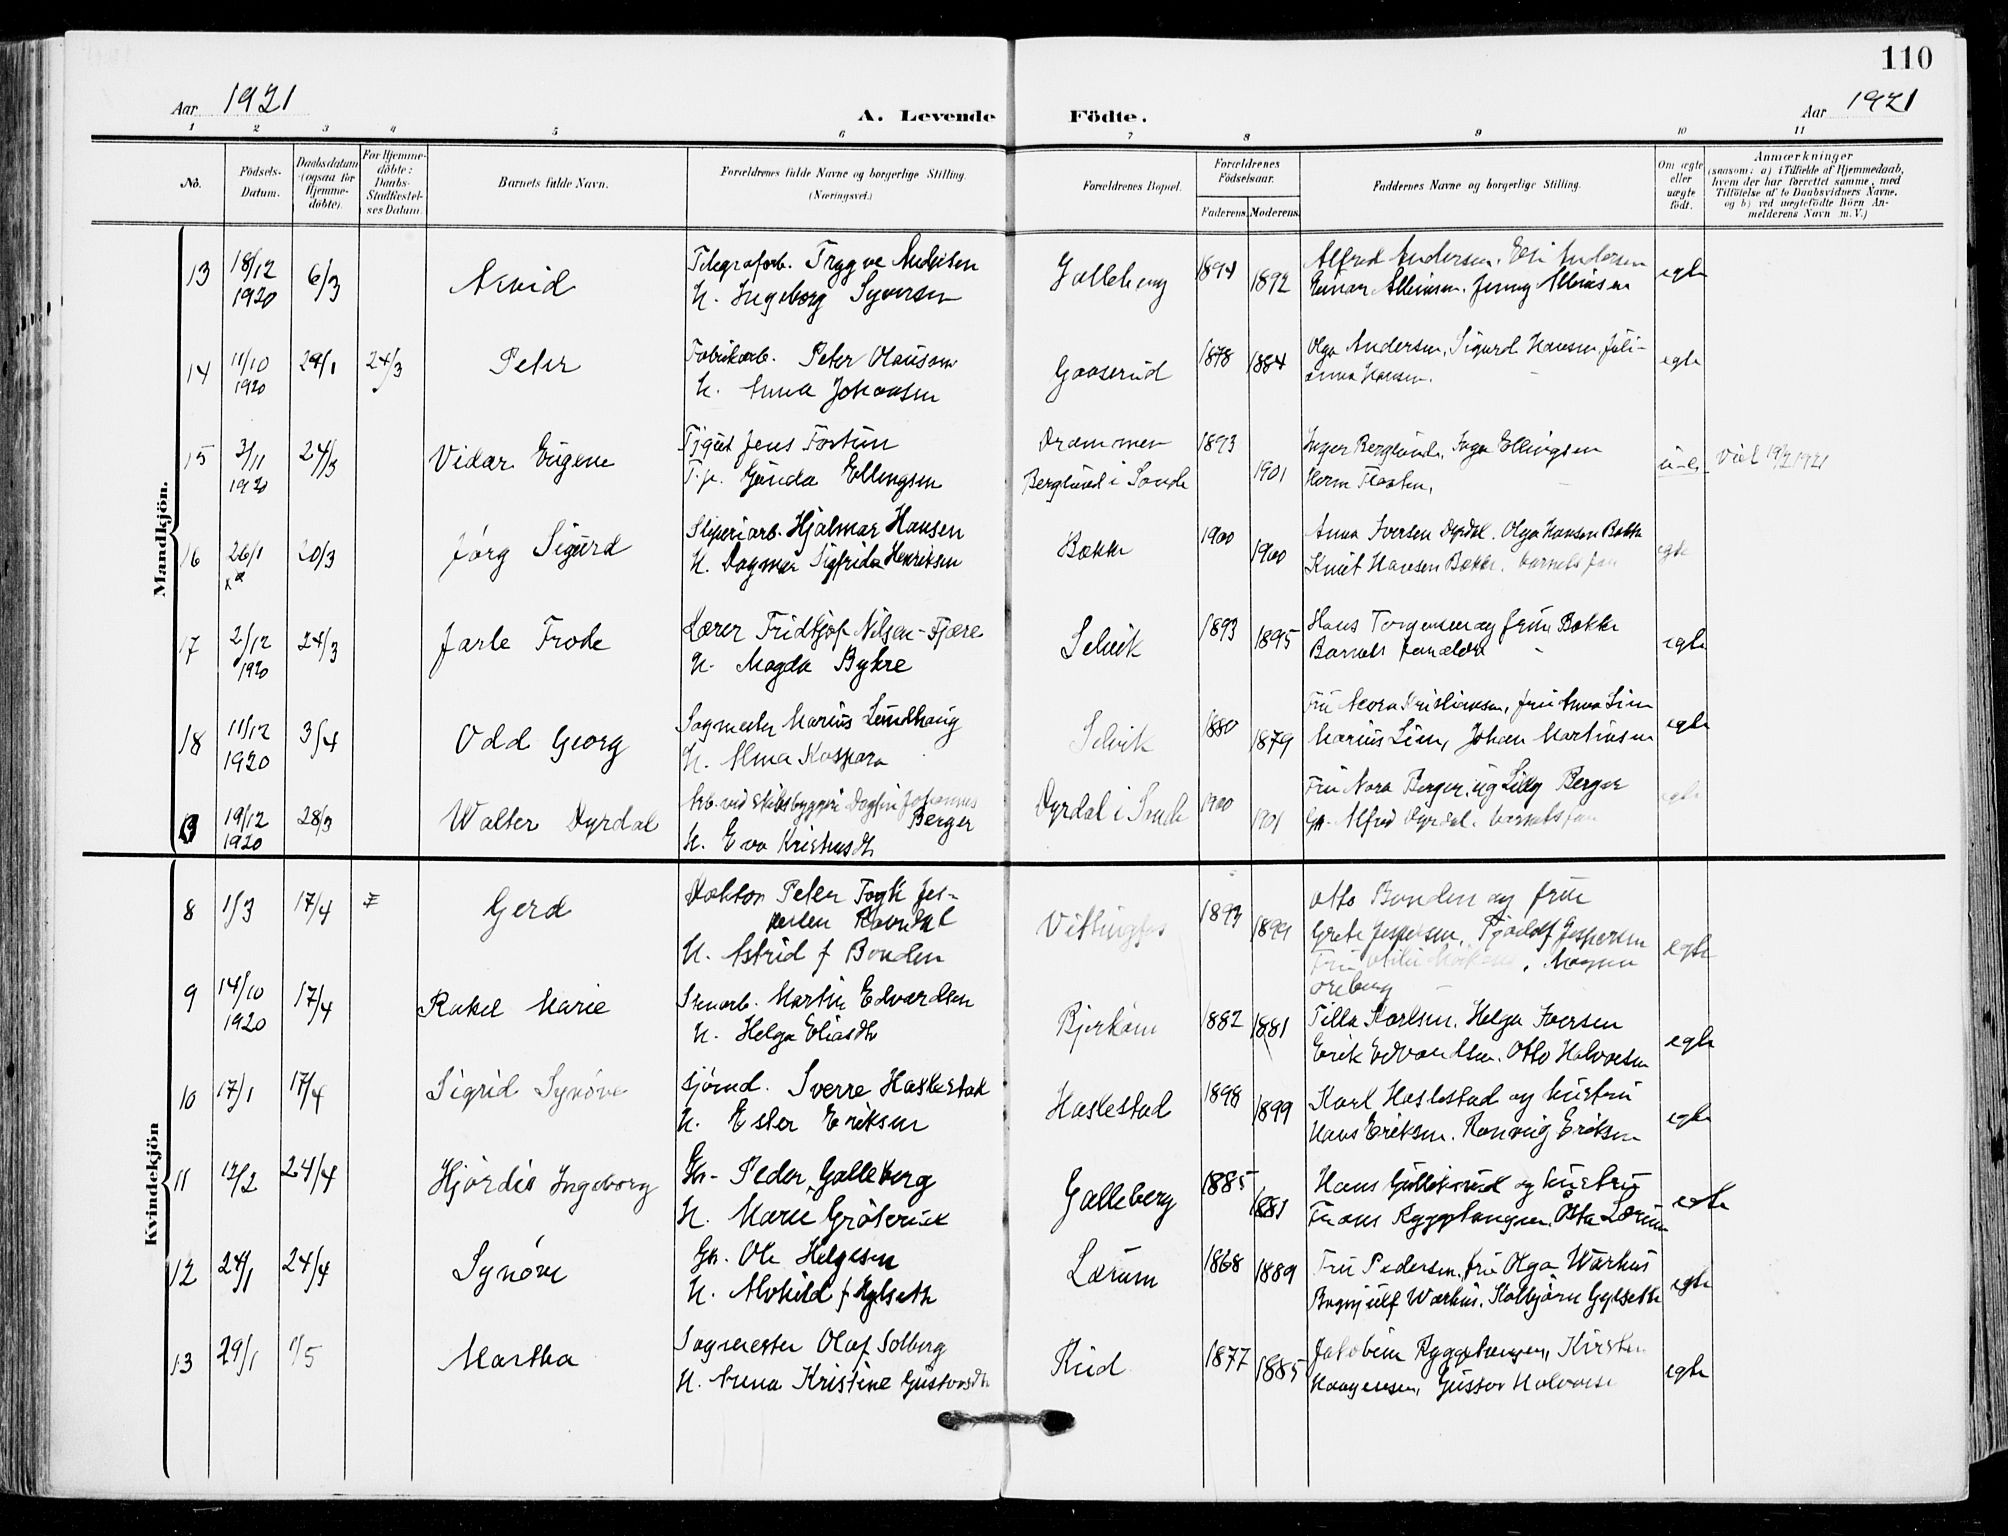 110
Aar 1921
A. Levende Födte.
Aar 1921
1 2 3 4 5 6 7 8 9 10 11
No.
Födsels-
Datum.
Daabsdatum
(ogsaa for
Hjemme-
döbte).
For Hjemme-
döbte:
Daabs-
Stadfæstel-
ses Datum.
Barnets fulde Navn.
Forældrenes fulde Navne og borgerlige Stilling.
(Næringsvei.)
Forældrenes Bopæl.
Forældrenes
Födselsaar.
Faderens. Moderens.
Faddernes Navne og borgerlige Stilling.
Om ægte
eller
uægte
født.
Anmærkninger
(saasom: a) i Tilfælde af Hjemmedaab,
hvem der har forrettet samme, med
Tilföielse af to Daabsvidners Navne,
og b) ved uægtefödte Börn An-
melderens Navn m. V.)
Mandkjön.
13 18/12 1920 6/3 Arvid
Telegrafarb. Trygve Andersen
H. Ingeborg Syversen
Galleberg 1894 1892
Alfred Andersen, Andersen
Einar Jenny
egte
14 11/10 1920 29/1 24/3 Peter
Fabrikarb. Peter Olausen
H. Anna Johansen
Gaaserud 1878 1884
Olga Andersen, Sigurd Hansen, Juli-
anna Hansen.
egte
15 3/11 1920 24/3 Vidar Eugene
Tjgut Jens Fostun
T.p. Gunda Ellingsen
Drammen
Berglund i Sande
1893 1901
Inger Berglund, Inga Ellingsen
Flaaten.
u-e. Viet 19/2 1921
16 26/1 20/3 Jörg Sigurd
Sliperiarb. Hjalmar Hansen
H. Dagmar Sigfrida Henriksen
Bække 1900 1900
Anna Iversen Dyrdal. Olga Hansen Bække
Knut Hansen Bække. barnets far
egte
17 2/12 1920 24/3 Jarle Frode
Lærer Fridtjof Nilsen-Fjære
H. Magda Bykre
Selvik 1893 1895
Hans Torgersen og frue Bække
Barnets forældre
egte
18 11/12 1920 3/4 Odd Georg
Sagmester Marius Lundhaug
H. Alma Kaspara
Selvik 1880 1879
Fru Nora Kristiansen, fru Anna Lien
Marius Lien, Johan Martinsen
egte
19/12 1920 28/3 Walter Dyrdal
Arb. ved Skibsbyggeri Dagfin Johannes
Berger
H. Eva Kristiansdtr
Dyrdal i Sande 1900 1901
Fru Nora Berger, og Lilly Berger
Gbr. Alfred Dyrdal. barnets far
egte
Kvindekjön
8 1/3 17/4 Gerd
Doktor Peter Fogh Jes-
persen Ravndal
H. Astrid f Bonden
Vittingfos 1893 1899
Otto Bonden og frue
Grete Jespersen, Jespersen
Fru Magnus
Oreberg
egte
9 14/10 1920 17/4 Rakel Marie
Stenarb. Martin Edvardsen
H. Helga Eliasdtr
Bjerkøen 1882 1881
Tilla Karlsen. Helga Iversen
Erik Edvardsen. Otto Halvorsen
egte
10 17/1 17/4 Sigrid Synöve
Sjömd. Sverre Haslestad
H. Ester Eriksen
Haslestad 1898 1899
Karl Haslestad og hustru
Hans Eriksen. Ranveig Eriksen
egte
11 12/2 24/4 Hjördis Ingeborg
Gbr- Peder Galleberg
H. Marie Gröterud
Galleberg 1885 1881
Hans Gulliksrud og hustru
Frans Ryggetangen. Asta Lærum
egte
12 24/1 24/4 Synöve
Gbr. Ole Helgesen
H. Alvhild f Gylseth
Lærum 1868 1889
Fru Pedersen, fru Olga Wærhus
Brynjulf Wærhus, Kolbjörn Gylseth
egte
13 29/1 1/5 Martha
Sagmester Olaf Solberg
H. Anna Kristine Gustavsdtr
Rud 1877 1885
Jakobine Ryggetangen, Kirsten
Haagensen, Gustav Halvorsen
egte